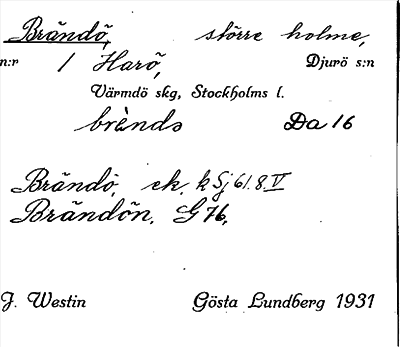 Brändö, större holme,
n:r 1 Harö, Djurö s:n
Värmdö skg, Stockholms l.
brè̀ndə Da 16
Brändö, ek. k Sj 61.8.V
Brändön. G 76,
J. Westin Gösta Lundberg 1931